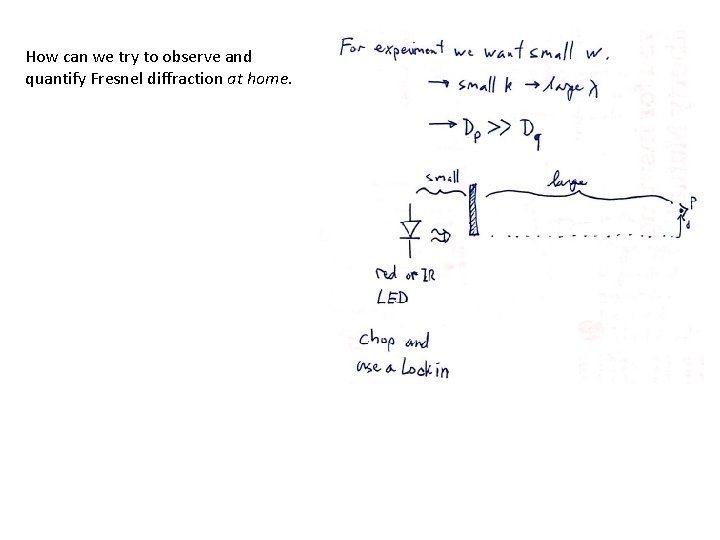 How can we try to observe and
quantify Fresnel diffraction at home.
For experiment we want small w.
→ small k → large λ
→ Dp >> Dq
small
large
P
d
red or IR
LED
Chop and
use a Lockin